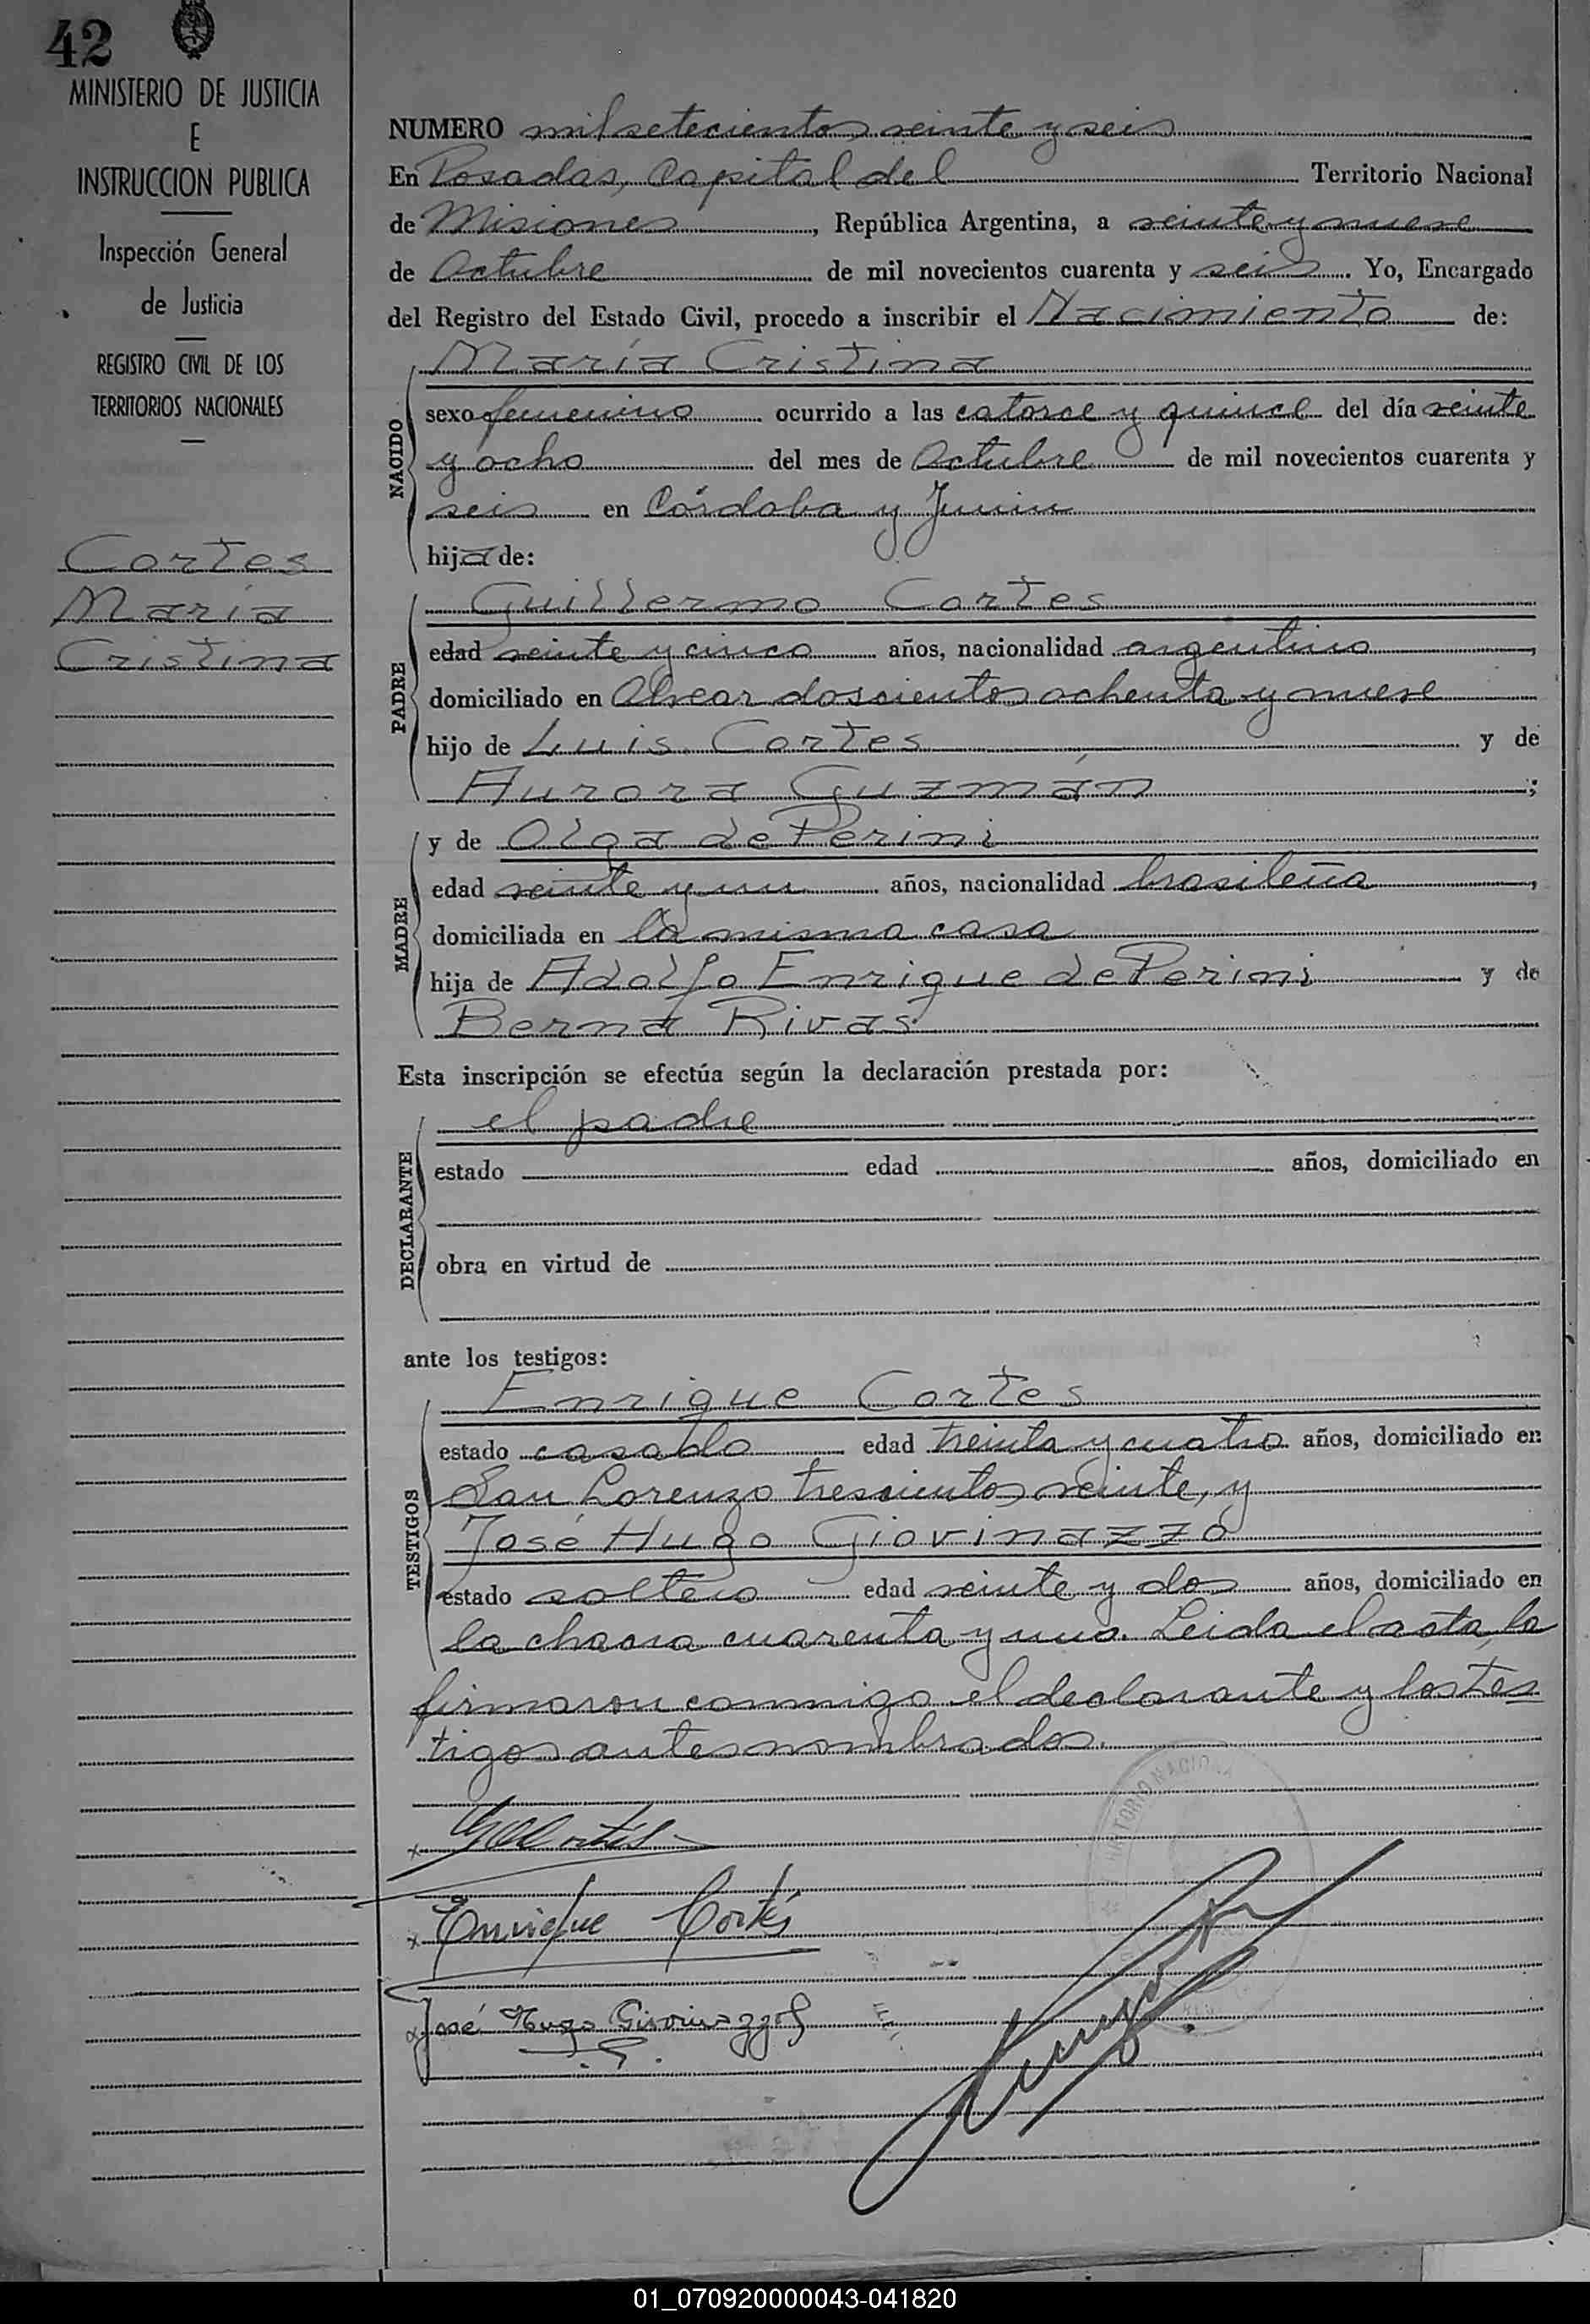 42
MINISTERIO DE JUSTICIA
E
INSTRUCCION PUBLICA
Inspección General
de Justicia
REGISTRO CIVIL DE LOS
TERRITORIOS NACIONALES
Cortes
María
Cristina
NUMERO mil setecientos veinte y seis
En Posadas, Capital del Territorio Nacional
de Misiones, República Argentina, a veinte y nueve
de Octubre de mil novecientos cuarenta y seis. Yo, Encargado
del Registro del Estado Civil, procedo a inscribir el Nacimiento de:
María Cristina
NACIDO
sexo femenino ocurrido a las catorce y quince del día veinte
y ocho del mes de Octubre de mil novecientos cuarenta y
seis en Córdoba y Junin
hija de:
Guillermo Cortes
PADRE
edad veinte y cinco años, nacionalidad argentino,
domiciliado en Alvear doscientos ochenta y nueve
hijo de Luis Cortes y de
Aurora Guzmán;
MADRE
y de Olga de Perini
edad veinte y un años, nacionalidad brasileña,
domiciliada en la misma casa
hija de Adolfo Enrique de Perini y de
Berna Rivas
Esta inscripción se efectúa según la declaración prestada por:
el padre
DECLARANTE
estado edad años, domiciliado en
obra en virtud de
ante los testigos:
Enrique Cortes
TESTIGOS
estado casado edad treinta y cuatro años, domiciliado en
San Lorenzo trescientos veinte, y
José Hugo Giovinazzo
estado soltero edad veinte y dos años, domiciliado en
la chacra cuarenta y uno. Leida el acta, la
firmaron conmigo el declarante y los tes
tigos antes nombrados.
x GCortés
x Enrique Cortés
x José Hugo Giovinazzo
J.G.
TORIO NACIONA
01_070920000043-041820